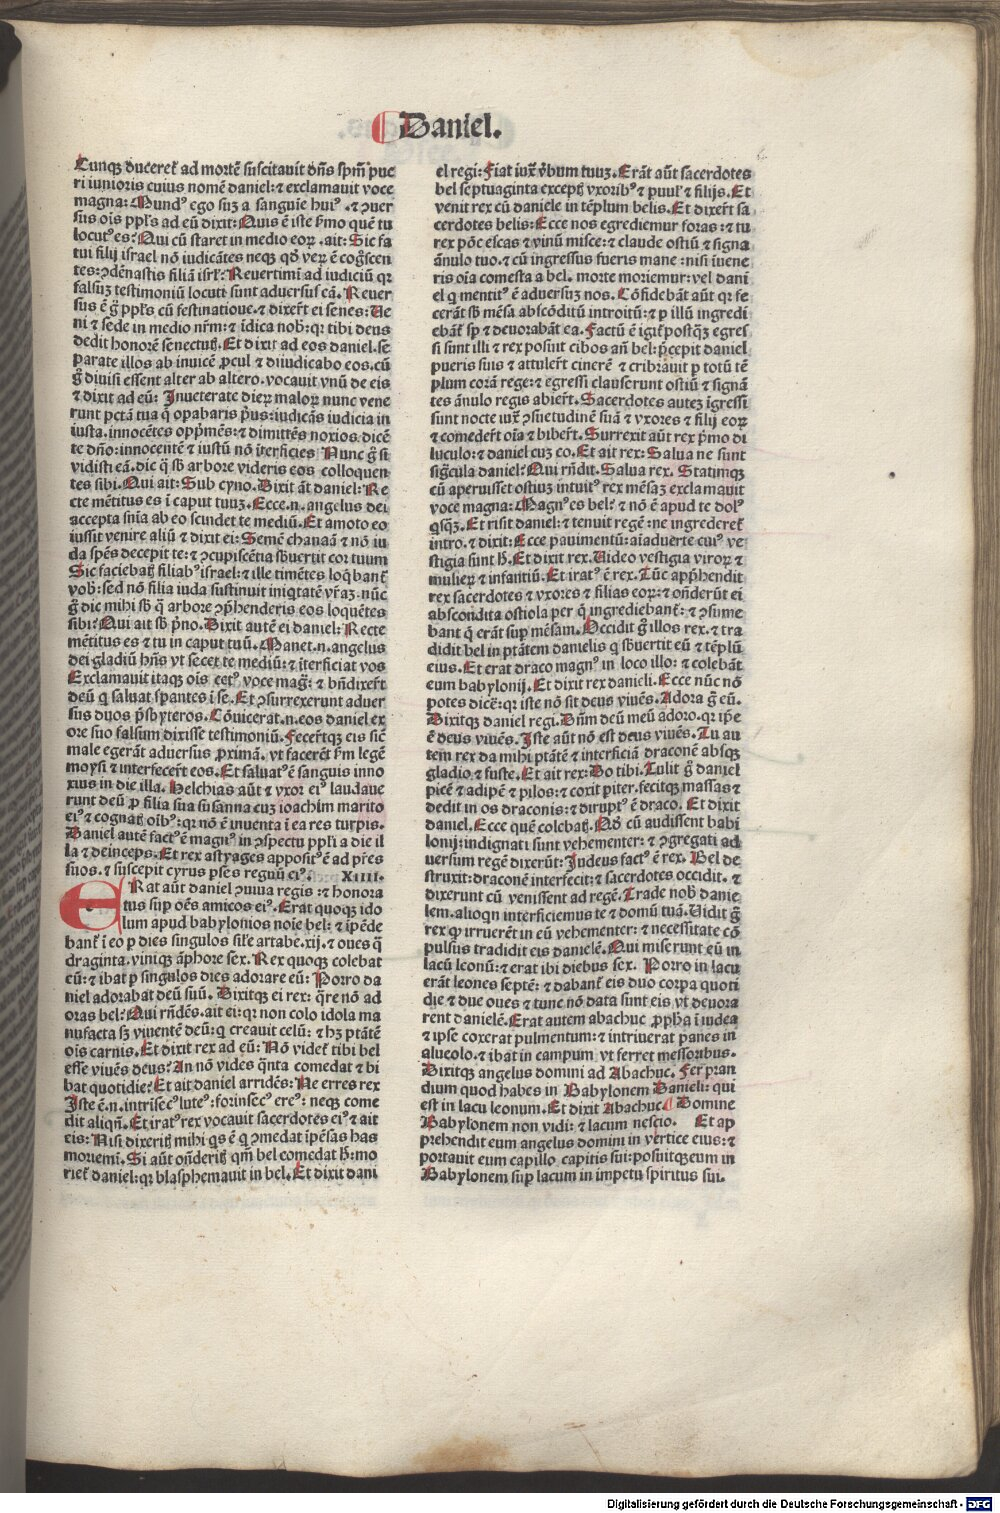 Daniel.
Cunqꝫ duceret᷑ ad mortē suscitauit dn̄s spm̄ pue
ri iunioris cuius nomē daniel: ⁊ exclamauit voce
magna: Mundꝰ ego suꝫ a sanguīe huiꝰ . ⁊ ꝯuer
sus oīs ppl̄s ad eū dixit: Quis ē iste ẜmo quē tu
locutꝰ es? Qui cū staret in medio eoꝝ . ait: Sic fa
tui filij israel nō iudicātes neqꝫ qd̄ veꝝ ē coḡscen
tes: ꝯdēnastis filiā isrl̄? Reuertimī ad iudiciū qꝛ
falsuꝫ testimoniū locuti sunt aduersus eā. Reuer
sus ē g̊ ppl̄s cū festinatione. ⁊ dixer̄t ei senes: Ue
ni ⁊ sede in medio nr̄m: ⁊ īdica nob̄: qꝛ tibi deus
dedit honorē senectutꝭ. Et dixit ad eos daniel. se
parate illos ab inuicē ꝓcul ⁊ diiudicabo eos. cū
g̊ diuisi essent alter ab altero. vocauit vnū de eis
⁊ dixit ad eū: Inueterate dieꝝ maloꝝ nunc vene
runt pctā tua q̄ opabaris pͥus: iudicās iudicia in
iusta. innocētes oppͥmēs: ⁊ dimittēs noxios dicē
te dn̄o: innocentē ⁊ iustū nō īterficies Nunc g̊ si
vidisti eā. dic q̄ sb̄ arbore videris eos colloquen
tes sibi. Qui ait: Sub cyno. Dixit āt daniel: Re
cte mētitus es ī caput tuuꝫ. Ecce .n. angelus dei
accepta sn̄ia ab eo scindet te mediū. Et amoto eo
iussit venire aliū ⁊ dixit ei: Semē chanaā ⁊ nō iu
da spēs decepit te: ⁊ ꝯcupiscētia sb̄uertit cor tuum
Sic faciebatꝭ filiabꝰ israel: ⁊ ille timētes loq̄bant᷑
vob̄: sed nō filia iuda sustinuit iniq̄tatē vr̄aꝫ. nūc
g̊ dic mihi sb̄ q̄ arbore ꝯp̄henderis eos loquētes
sibi? Qui ait sb̄ pͥno. Dixit autē ei daniel: Recte
mētitus es ⁊ tu in caput tuū. Manet .n. angelus
dei gladiū hn̄s vt secet te mediū: ⁊ īterficiat vos
Exclamauit itaqꝫ oīs cetꝰ voce maḡ: ⁊ bn̄dixer̄t
deū q̄ saluat sꝑantes ī se. Et ꝯsurrexerunt aduer
sus duos pͥsbyteros. Cōuicerat .n. eos daniel ex
ore suo falsum dixisse testimoniū. Fecer̄tqꝫ eis sic̄
male egerāt aduersus ꝓximā. vt facerēt ẜm legē
moysi ⁊ interfecer̄t eos. Et saluatꝰ ē sanguis inno
xius in die illa. Helchias aūt ⁊ vxor eiꝰ laudaue
runt deū ꝓ filia sua susanna cuꝫ ioachim marito
eiꝰ ⁊ cognatꝭ oībꝰ: qꝛ nō ē inuenta ī ea res turpis.
Daniel autē factꝰ ē magnꝰ in ꝯspectu ppl̄i a die il
la ⁊ deinceps. Et rex astyages appositꝰ ē ad pr̄es
suos. ⁊ suscepit cyrus pses regnū eiꝰ. XIIII.
ERat aūt daniel ꝯuiua regis : ⁊ honora
tus suꝑ oēs amicos eiꝰ. Erat quoqꝫ ido
lum apud babylonios noīe bel: ⁊ īpēde
bant᷑ ī eo ꝑ dies singulos sil̄e artabe .xij. ⁊ oues q̄
draginta. viniqꝫ āphore sex. Rex quoqꝫ colebat
eū: ⁊ ibat ꝑ singulos dies adorare eū: Porro da
niel adorabat deū suū. Dixitqꝫ ei rex: q̄re nō ad
oras bel? Qui rn̄dēs. ait ei: qꝛ non colo idola ma
nufacta sꝫ viuentē deū: q̄ creauit celū: ⁊ hꝫ ptātē
oīs carnis. Et dixit rex ad eū: Nō videt᷑ tibi bel
esse viuēs deus? An nō vides q̄nta comedat ⁊ bi
bat quotidie? Et ait daniel arridēs: Ne erres rex
Iste ē .n. intrīsecꝰ luteꝰ: forinsecꝰ ereꝰ: neqꝫ come
dit aliqn̄. Et iratꝰ rex vocauit sacerdotes eiꝰ ⁊ ait
eis: Nisi dixeritꝭ mihi qͥs ē q̄ ꝯmedat īpēsas has
moriemī. Si aūt on̄deritꝭ qm̄ bel comedat h̄: mo
riet᷑ daniel: qꝛ blasphemauit in bel. Et dixit dani
el regi: Fiat iux̄ v̄bum tuuꝫ. Erāt aūt sacerdotes
bel septuaginta exceptꝭ vxoribꝰ ⁊ puul᷑ ⁊ filijs. Et
venit rex cū daniele in tēplum belis. Et dixer̄t sa
cerdotes belis: Ecce nos egrediemur foras: ⁊ tu
rex pōe escas ⁊ vinū misce: ⁊ claude ostiū ⁊ signa
ānulo tuo. ⁊ cū ingressus fueris mane : nisi īuene
ris oīa comesta a bel. morte moriemur: vel dani
el q̄ mentitꝰ ē aduersuꝫ nos. Cōfidebāt aūt qꝛ fe
cerāt sb̄ mēsa abscōditū introitū: ⁊ ꝑ illū ingredi
ebāt᷑ sꝑ ⁊ deuorabāt ea. Factū ē igit᷑ postqꝫ egres
si sunt illi ⁊ rex posuit cibos an̄ bel: p̄cepit daniel
pueris suis ⁊ attuler̄t cinerē ⁊ cribrauit ꝑ totū tē
plum corā rege: ⁊ egressi clauserunt ostiū ⁊ signā
tes ānulo regis abier̄t. Sacerdotes auteꝫ īgressi
sunt nocte iux̄ ꝯsuetudinē suā ⁊ vxores ⁊ filij eoꝝ
⁊ comeder̄t oīa ⁊ biber̄t. Surrexit aūt rex pͥmo di
luculo: ⁊ daniel cuꝫ eo. Et ait rex: Salua ne sunt
siḡcula daniel? Qui rn̄dit. Salua rex. Statimqꝫ
cū aperuisset ostiuꝫ intuitꝰ rex mēsaꝫ exclamauit
voce magna: Magnꝰ es bel: ⁊ nō ē apud te dolꝰ
qͥsqꝫ. Et risit daniel: ⁊ tenuit regē: ne ingrederet᷑
intro. ⁊ dixit: Ecce pauimentū: aīaduerte cuiꝰ ve
stigia sunt h̄. Et dixit rex. Uideo vestigia viroꝝ ⁊
mulieꝝ ⁊ infantiū. Et iratꝰ ē rex. Tūc app̄hendit
rex sacerdotes ⁊ vxores ⁊ filias eoꝝ: ⁊ on̄derūt ei
abscondita ostiola per q̄ ingrediebant᷑: ⁊ ꝯsume
bant q̄ erāt suꝑ mēsam. Occidit g̊ illos rex. ⁊ tra
didit bel in ptātem danielis q̄ sb̄uertit eū ⁊ tēplū
eius. Et erat draco magnꝰ in loco illo: ⁊ colebāt
eum babylonij. Et dixit rex danieli. Ecce nūc nō
potes dicē: qꝛ iste nō sit deus viuēs. Adora g̊ eū.
Dixitqꝫ daniel regi. Dn̄m deū meū adoro. qꝛ ip̄e
ē deus viuēs. Iste aūt nō est deus viuēs. Tu au
tem rex da mihi ptātē ⁊ interficiā draconē absqꝫ
gladio ⁊ fuste. Et ait rex: Do tibi. Tulit g̊ daniel
picē ⁊ adipē ⁊ pilos: ⁊ coxit piter. fecitqꝫ massas ⁊
dedit in os draconis: ⁊ diruptꝰ ē draco. Et dixit
daniel. Ecce quē colebatꝭ. Qd̄ cū audissent babi
lonij: indignati sunt vehementer: ⁊ ꝯgregati ad
uersum regē dixerūt: Iudeus factꝰ ē rex. Bel de
struxit: draconē interfecit: ⁊ sacerdotes occidit. ⁊
dixerunt cū venissent ad regē. Trade nob̄ danie
lem. alioqn interficiemus te ⁊ domū tuā. Uidit g̊
rex ꝙ irruerēt in eū vehementer: ⁊ necessitate cō
pulsus tradidit eis danielē. Qui miserunt eū in
lacū leonū: ⁊ erat ibi diebus sex. Porro in lacu
erāt leones septē: ⁊ dabant᷑ eis duo corpa quoti
die ⁊ due oues ⁊ tunc nō data sunt eis vt deuora
rent danielē. Erat autem abachuc ꝓph̄a ī iudea
⁊ ipse coxerat pulmentum: ⁊ intriuerat panes in
alueolo. ⁊ ibat in campum vt ferret messoribus.
Dixitqꝫ angelus domini ad Abachuc. Fer pran
dium quod habes in Babylonem Danieli: qui
est in lacu leonum. Et dixit Abachuc. Domine
Babylonem non vidi: ⁊ lacum nescio. Et ap
prehendit eum angelus domini in vertice eius: ⁊
portauit eum capillo capitis sui: posuitqꝫ eum in
Babylonem suꝑ lacum in impetu spiritus sui.
Digitalisierung gefördert durch die Deutsche Forschungsgemeinschaft - DFG